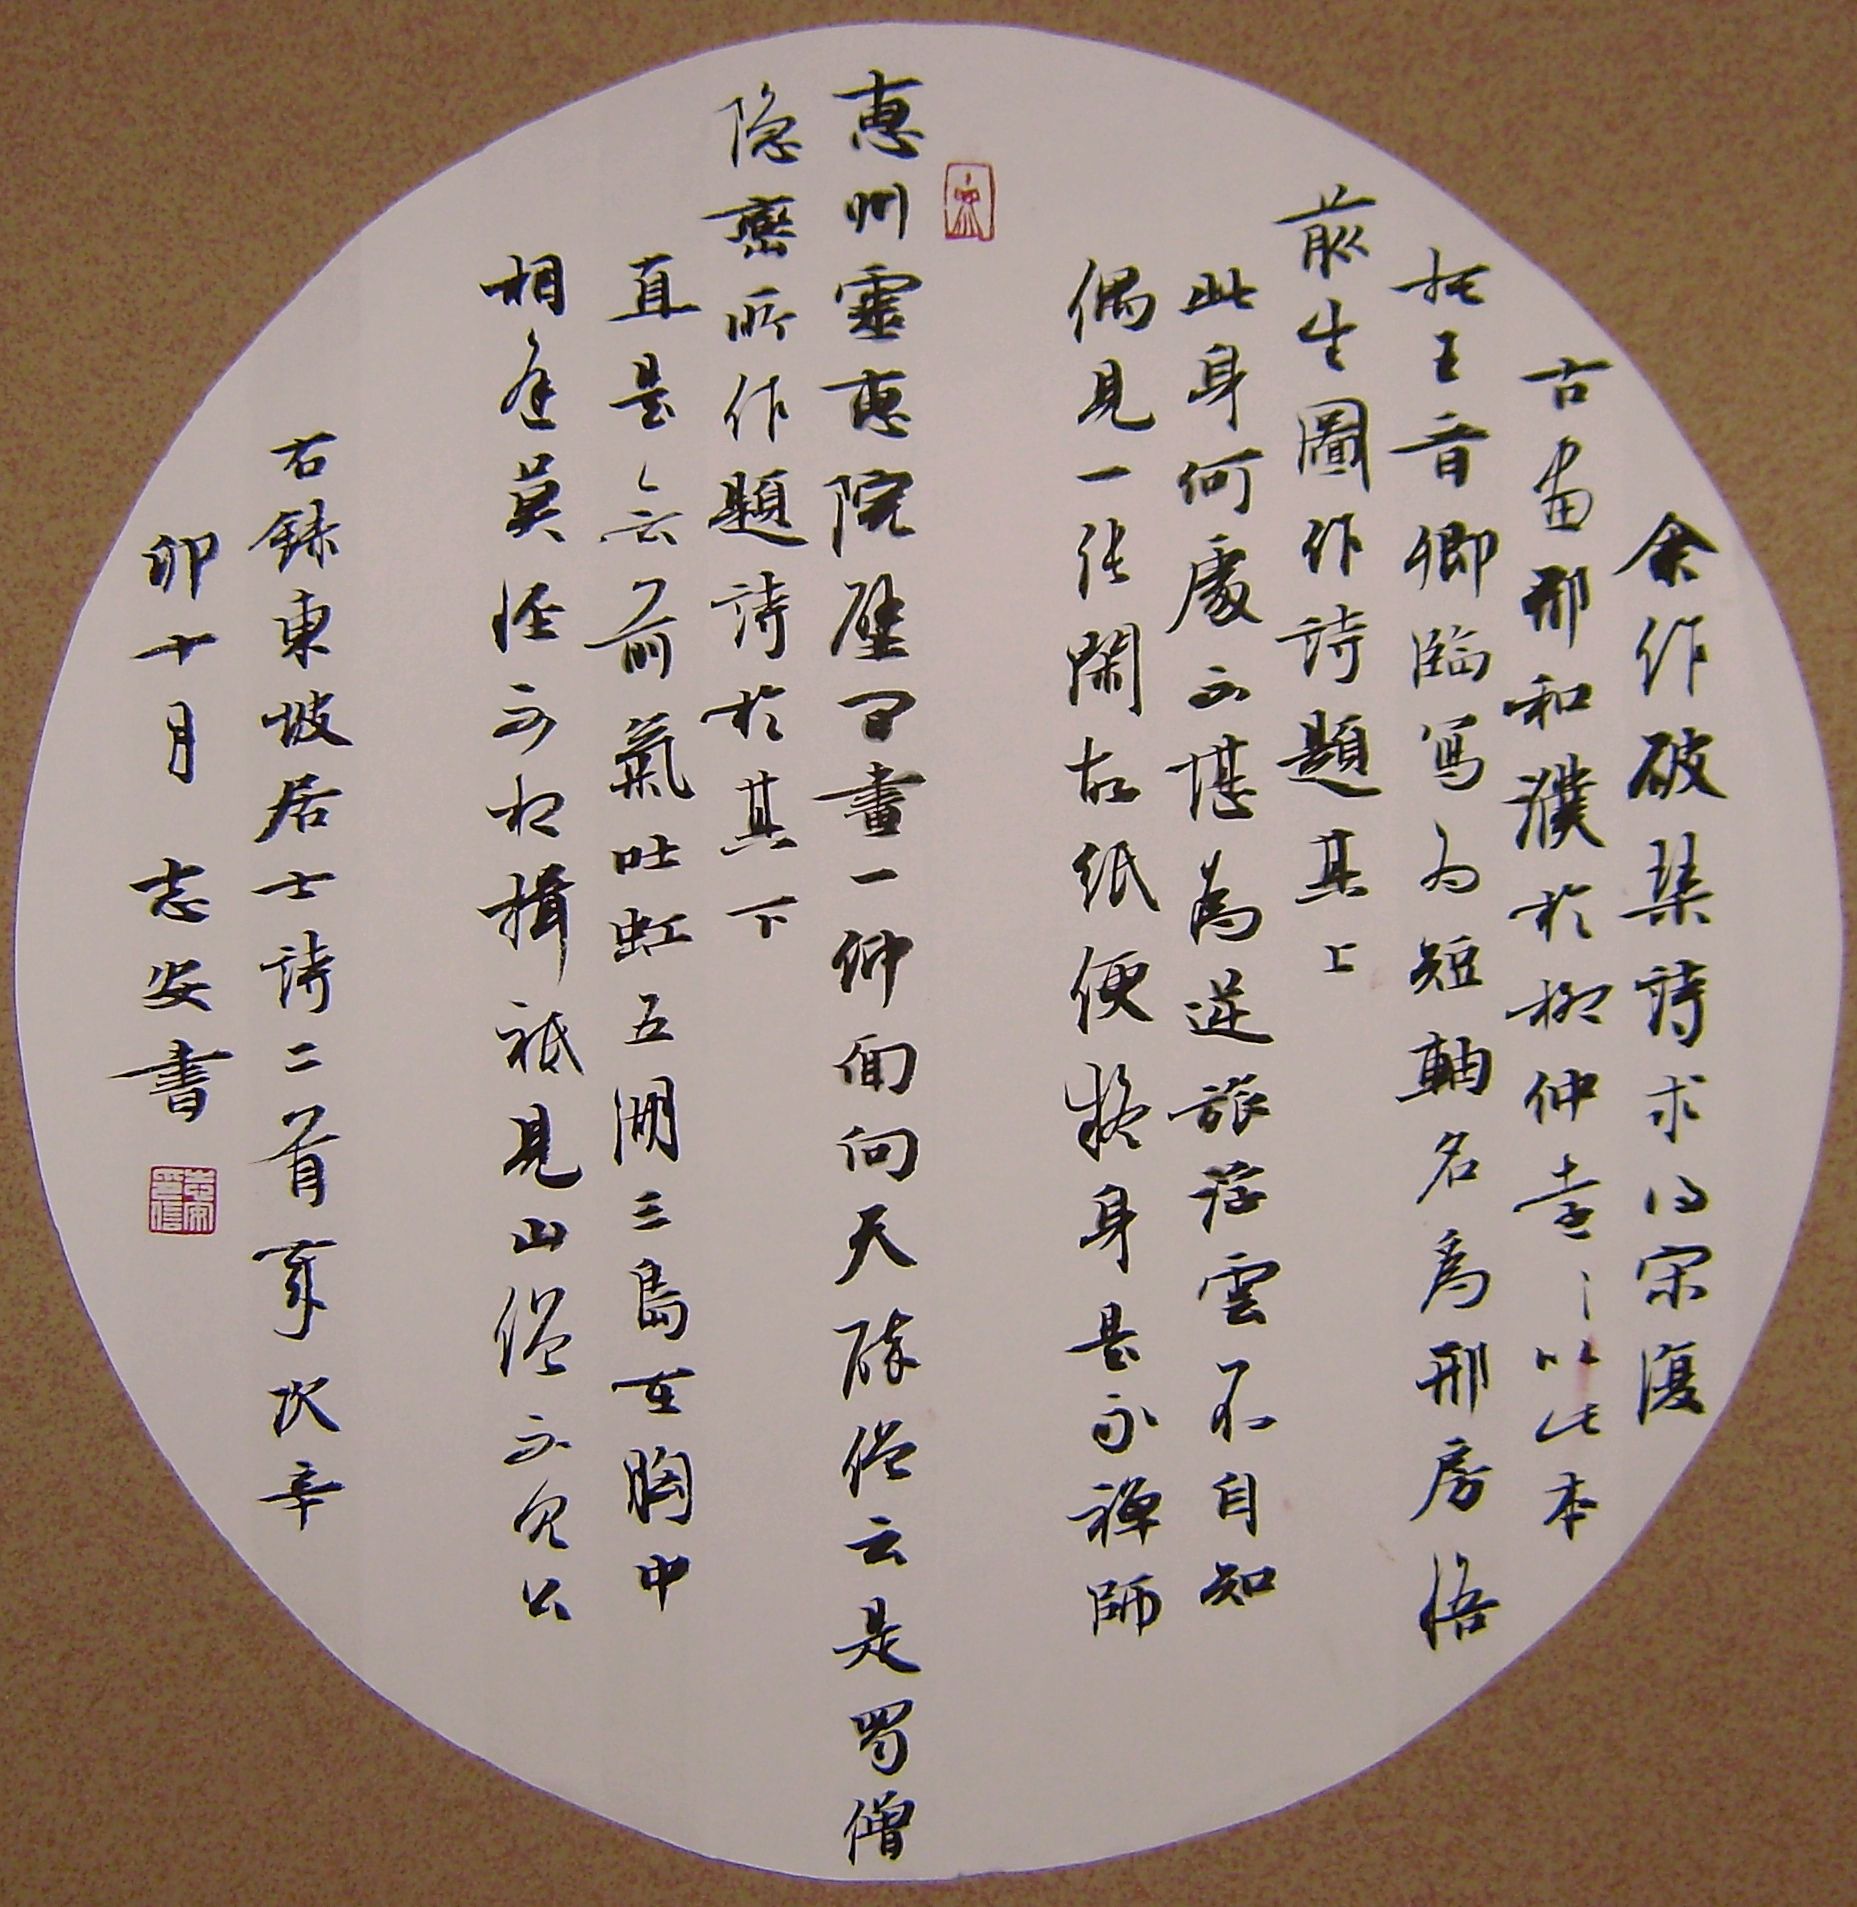 余作破琴詩求得宋復
古畫邢和璞於柳仲遠〻以此本
托王晉卿臨寫為短軸名為邢房悟
前生圖作詩題其上
此身何處不堪為逆旅浮雲不自知
偶見一張閑故紙便疑身是永禪師
惠州靈惠院壁間畫一仰面向天醉僧云是蜀僧
隐巒所作題詩於其下
直是〻云前氣吐虹五湖三島在胸中
相逢莫怪不相揖祗見山僧不見公
右錄東坡居士詩二首軍次辛
卯十月 志安書